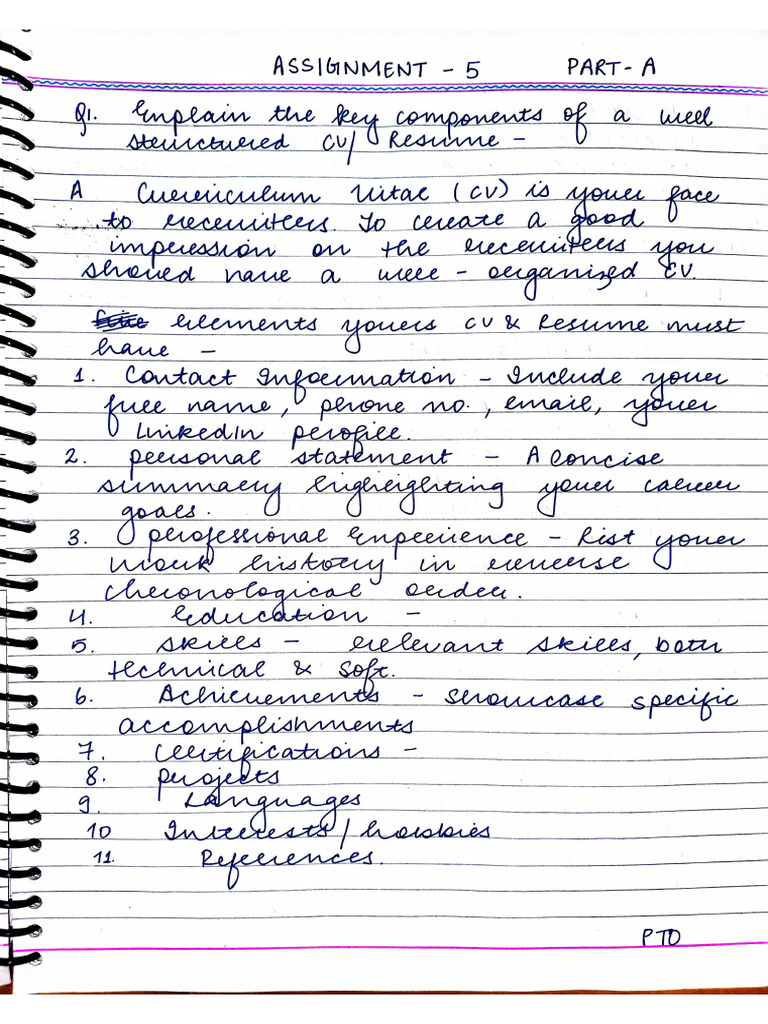 ASSIGNMENT - 5 PART- A
Q1. Explain the key components of a well
structured CV/ Resume -
A Curriculum Vitae (CV) is your face
to recruiters. To create a good
impression on the recruiters you
should have a well - organized CV.
elements yours CV & Resume must
have -
1. Contact Information - Include your
full name, phone no., email, your
LinkedIn profile.
2. personal statement - A concise
summary highlighting your career
goals.
3. professional Experience - List your
work history in reverse
chronological order.
4. Education -
5. Skills - relevant skills, both
technical & soft.
6. Achievements - showcase specific
accomplishments
7. Certifications -
8. projects
9. Languages
10 Interests / hobbies
11. References.
PTO